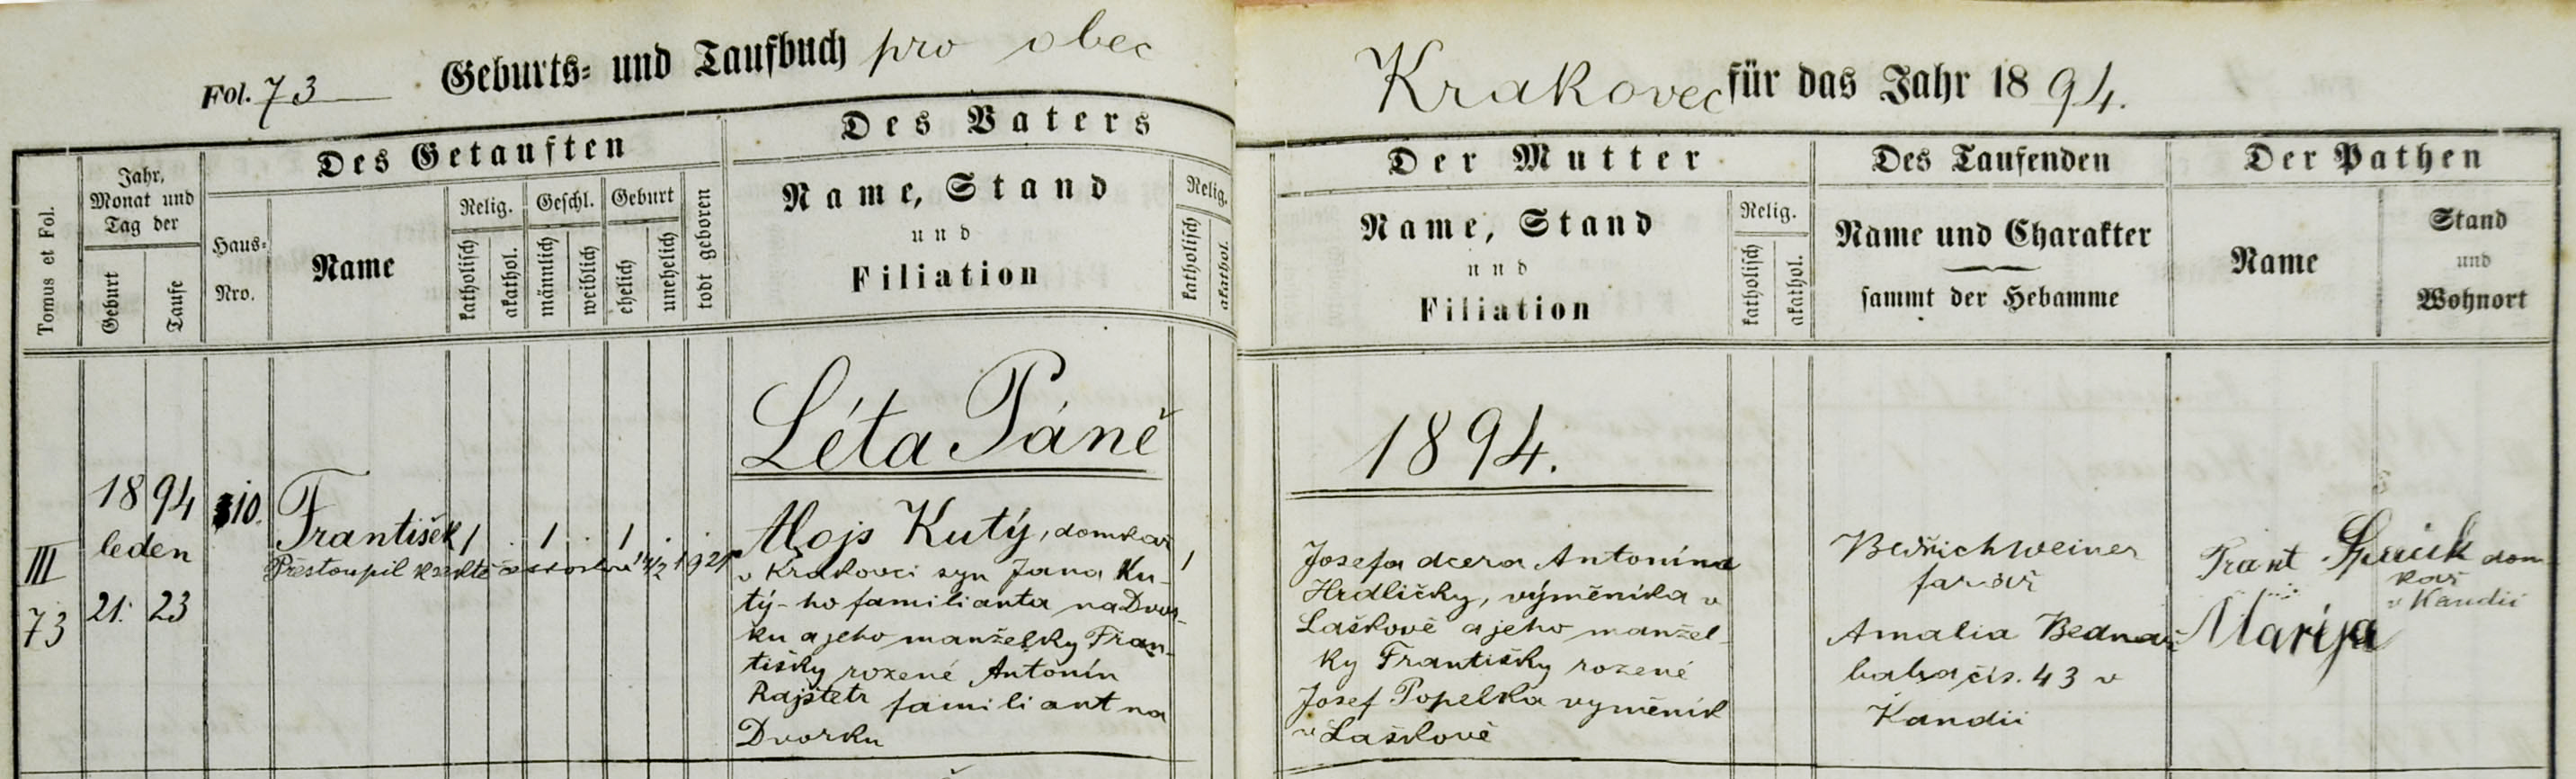 Fol. 73 Geburts= und Taufbuch pro obec Krakovec für das Jahr 1894.
Tomus et Fol.
Jahr, Monat und Tag der
Geburt
Taufe
Des Getauften
Haus= Nro.
Name
Relig.
katholisch
akathol.
Geschl.
männlich
weiblich
Geburt
ehelich
unehelich
todt geboren
Des Vaters
Name, Stand
und
Filiation
Relig.
katholisch
akathol.
Der Mutter
Name, Stand
und
Filiation
Relig.
katholisch
akathol.
Des Taufenden
Name und Charakter
sammt der Hebamme
Der Pathen
Name
Stand
und
Wohnort
Léta Páně 1894.
III
73
1894
leden
21. 23
10.
František
1 . 1 . 1 . .
Přestoupil k sektě 1921
Alojs Kutý, domkar
v Krakovci syn Jana Ku-
tý-ho familianta na Dvor-
ku a jeho manželky Fran-
tišky rozené Antonín
Rajšteta familiant na
Dvorku
1
Josefa dcera Antonína
Hrdličky, výměníka v
Laškově a jeho manžel-
ky Františky rozené
Josef Popelka vyměník
v Laškově
Bedřich Weiner
farář
Amalia Bednař
baba čís. 43 v
Kandii
Frant dom-
kař
v Kandii
Marija